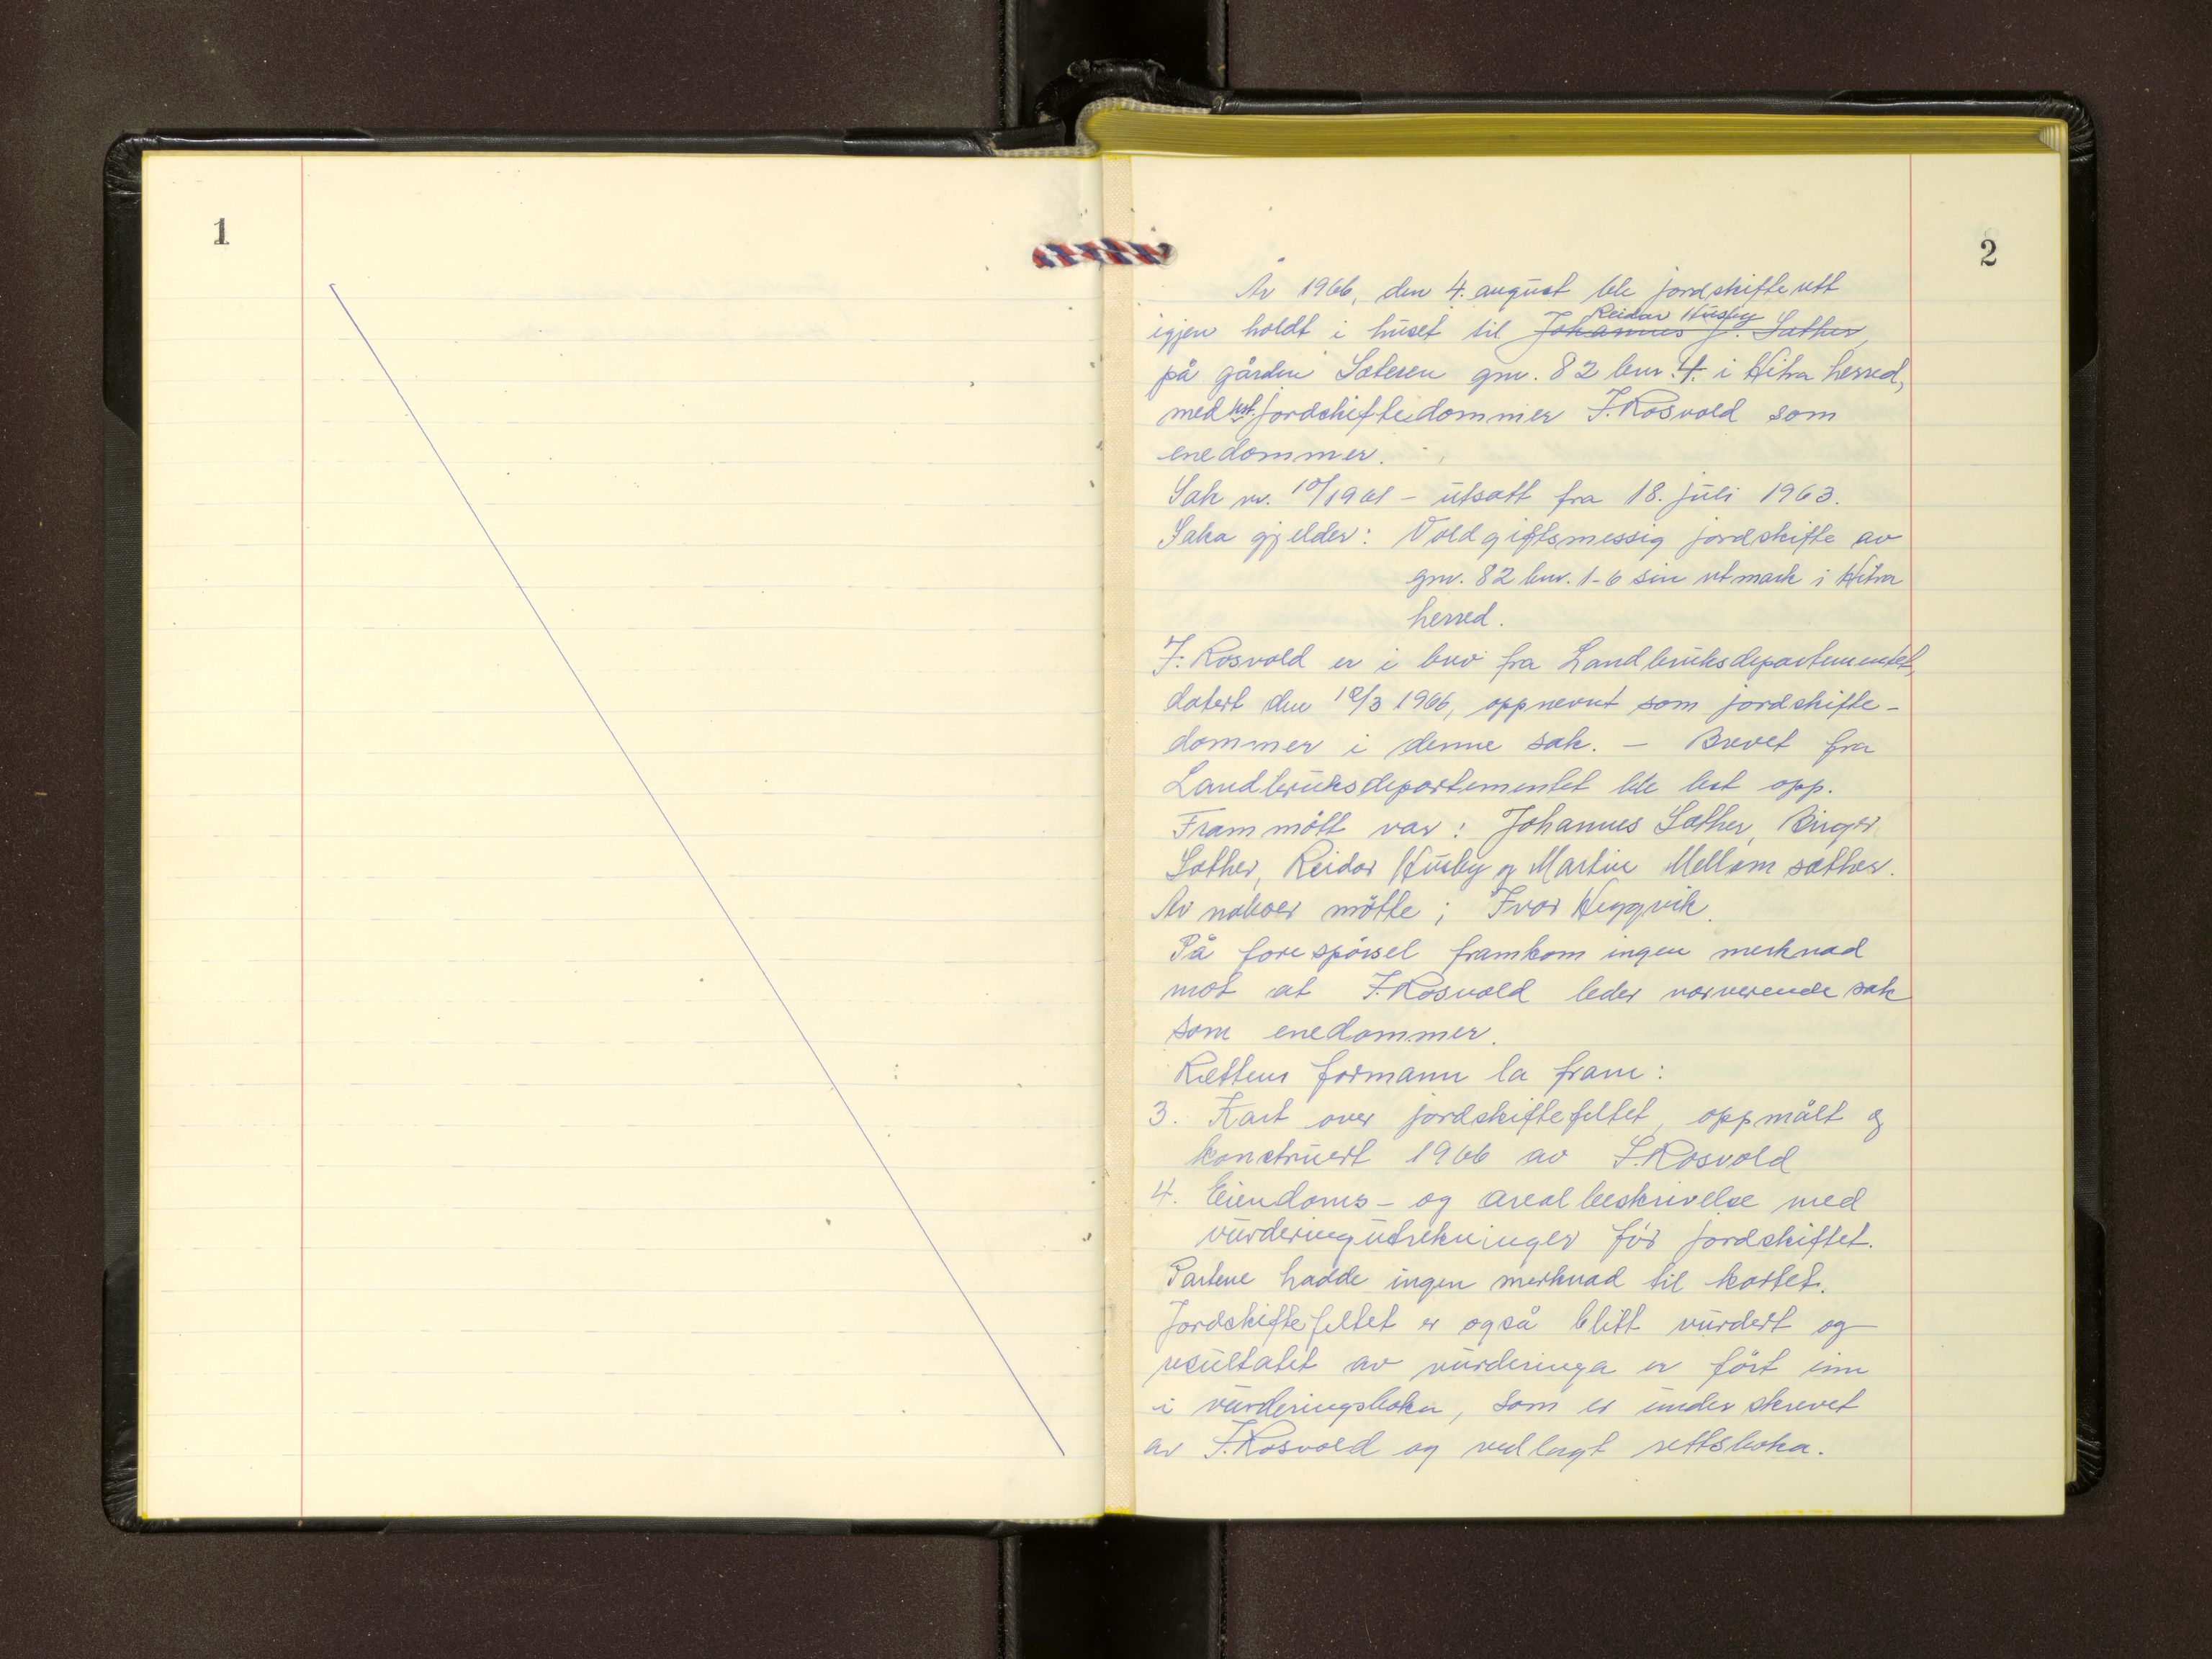 1
2
År 1966, den 4. august ble jordskifterett
Reidar Husby
igjen holdt i huset til Johannes J. Sæther,
på gården Sæteren gnr. 82 bnr. 4. i Hitra herred,
med jordskiftedommer J. Rosvold som
enedommer.
Sak nr. 10/1961 - utsatt fra 18. juli 1963.
Saka gjelder: Voldgiftsmessig jordskifte av
gnr. 82 bnr. 1-6 sin utmark i Hitra
herred.
J. Rosvold er i brev fra Landbruksdepartementet,
datert den 18/3 1966, oppnevnt som jordskifte-
dommer i denne sak. - Brevet fra
Landbruksdepartementet ble lest opp.
Frammøtt var: Johannes Sæther, Birger
Sæther, Reidar Husby og Martin Mellomsæther.
Av naboer møtte; Ivar Heggvik.
På forespørsel framkom ingen merknad
mot at J. Rosvold leder nærværende sak
som enedommer.
Rettens formann la fram:
3. Kart over jordskiftefeltet, oppmålt og
konstruert 1966 av J. Rosvold
4. Eiendoms- og arealbeskrivelse med
vurderingutrekninger før jordskiftet.
Partene hadde ingen merknad til kartet.
Jordskiftefeltet er også blitt vurdert og
resultatet av vurderinga er ført inn
i vurderingsboka, som er underskrevet
av J. Rosvold og vedlagt rettsboka.